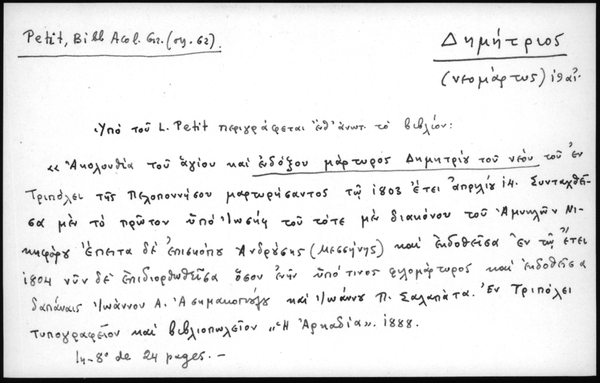 Petit, Bibl Acol. Gr. (σχ. 62)
Δημήτριος
(νεομάρτυς) ιθ' αἰ.
Ὑπὸ τοῦ L. Petit περιγράφεται ἐνθ' ἀνωτ. τὸ βιβλίον:
«Ἀκολουθία τοῦ ἁγίου καὶ ἐνδόξου μάρτυρος Δημητρίου τοῦ νέου τοῦ ἐν
Τριπόλει τῆς Πελοποννήσου μαρτυρήσαντος τῷ 1803 ἔτει ἀπριλίου 14. Συνταχθεῖ-
σα μὲν τὸ πρῶτον ὑπὸ Ἰωσὴφ τοῦ τότε μὲν διακόνου τοῦ Ἀμυκλῶν Νι-
κηφόρου ἔπειτα δὲ ἐπισκόπου Ἀνδρούσης (Μεσσήνης) καὶ ἐκδοθεῖσα ἐν τῷ ἔτει
1804 νῦν δὲ ἐπιδιορθωθεῖσα ὅσον ἐνῆν ὑπό τινος φιλομάρτυρος καὶ ἐκδοθεῖσα
δαπάναις Ἰωάννου Α. Ἀσημακοπούλου καὶ Ἰωάννου Π. Σαλαπάτα. Ἐν Τριπόλει
τυπογραφεῖον καὶ βιβλιοπωλεῖον «Ἡ Ἀρκαδία». 1888.
In-8° de 24 pages. —